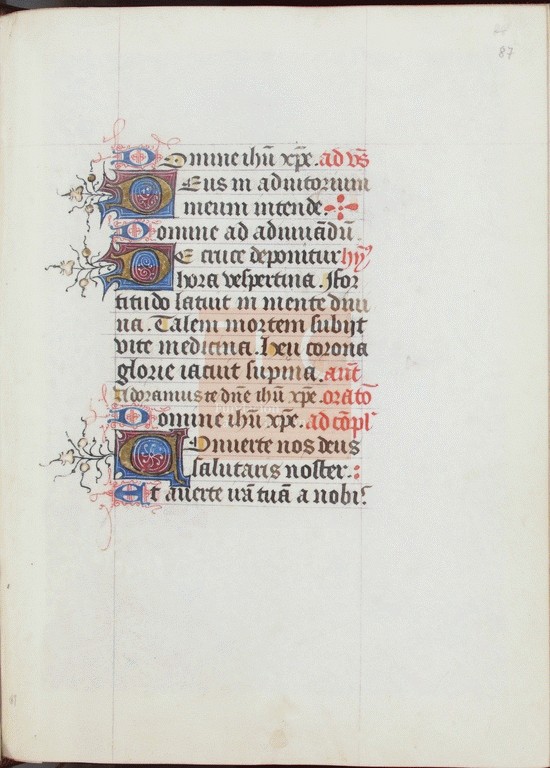 87
Domine ihu xpe. ad vs
Deus in adiutorium
meum intende.
Domine ad adiuuādū.
De cruce deponitur hy
hora vespertina. ffor
titudo latuit in mente diui
na. Talem mortem subijt
vite medicina. Heu corona
glorie iacuit supina. ant
Adoramus te dne ihu xpe. oratō
Domine ihu xpe. ad cōpl
Conuerte nos deus
salutaris noster.
Et auerte irā tuā a nobis